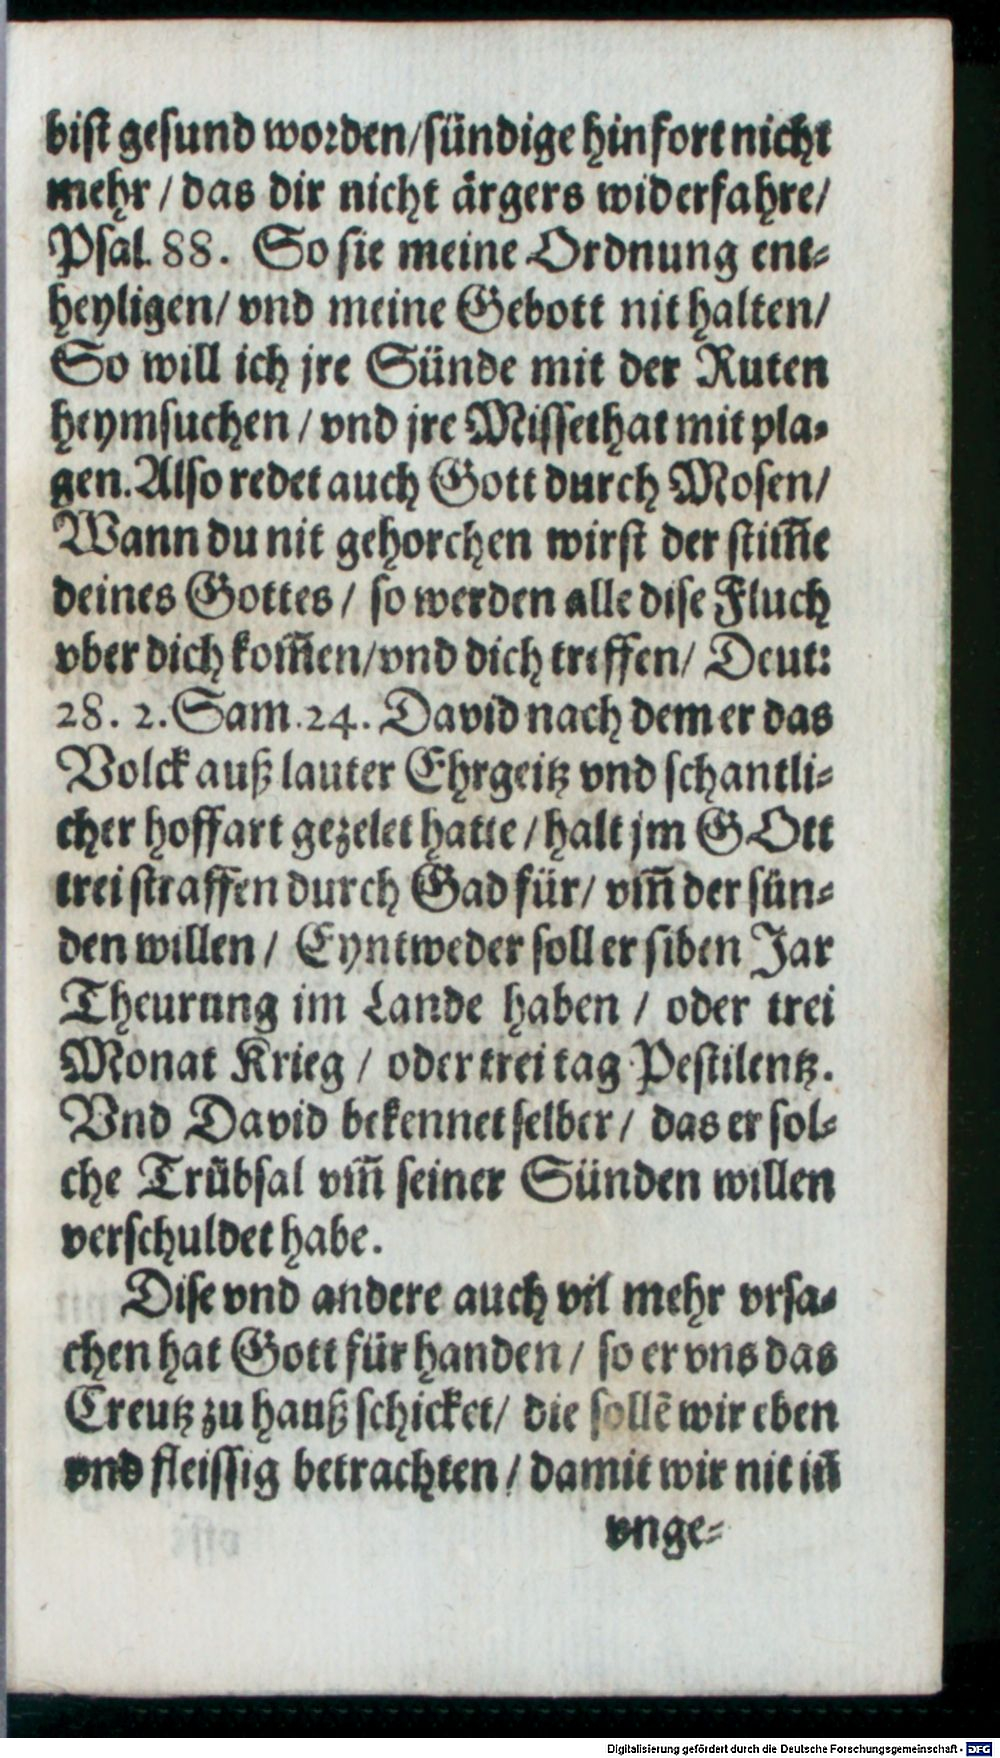 bist gesund worden/sündige hinfort nicht
mehr / das dir nicht ärgers widerfahre/
Psal. 88. So sie meine Ordnung ent-
heyligen/ vnd meine Gebott nit halten/
So will ich jre Sünde mit der Ruten
heymsuchen / vnd jre Missethat mit pla-
gen. Also redet auch Gott durch Mosen/
Wann du nit gehorchen wirst der stim̃e
deines Gottes / so werden alle dise Fluch
vber dich kom̃en/vnd dich treffen/ Deut:
28. 2. Sam. 24. David nach dem er das
Volck auß lauter Ehrgeitz vnd schantli-
cher hoffart gezelet hatte / halt jm GOtt
trei straffen durch Gad für/ vm̃ der sün-
den willen / Eyntweder soll er siben Jar
Theurung im Lande haben / oder trei
Monat Krieg / oder trei tag Pestilentz.
Vnd David bekennet selber / das er sol-
che Trübsal vm̃ seiner Sünden willen
verschuldet habe.
Dise vnd andere auch vil mehr vrsa-
chen hat Gott für handen / so er vns das
Creutz zu hauß schicket/ die sollẽ wir eben
vnd fleissig betrachten / damit wir nit iñ
vnge-
Digitalisierung gefördert durch die Deutsche Forschungsgemeinschaft - DFG